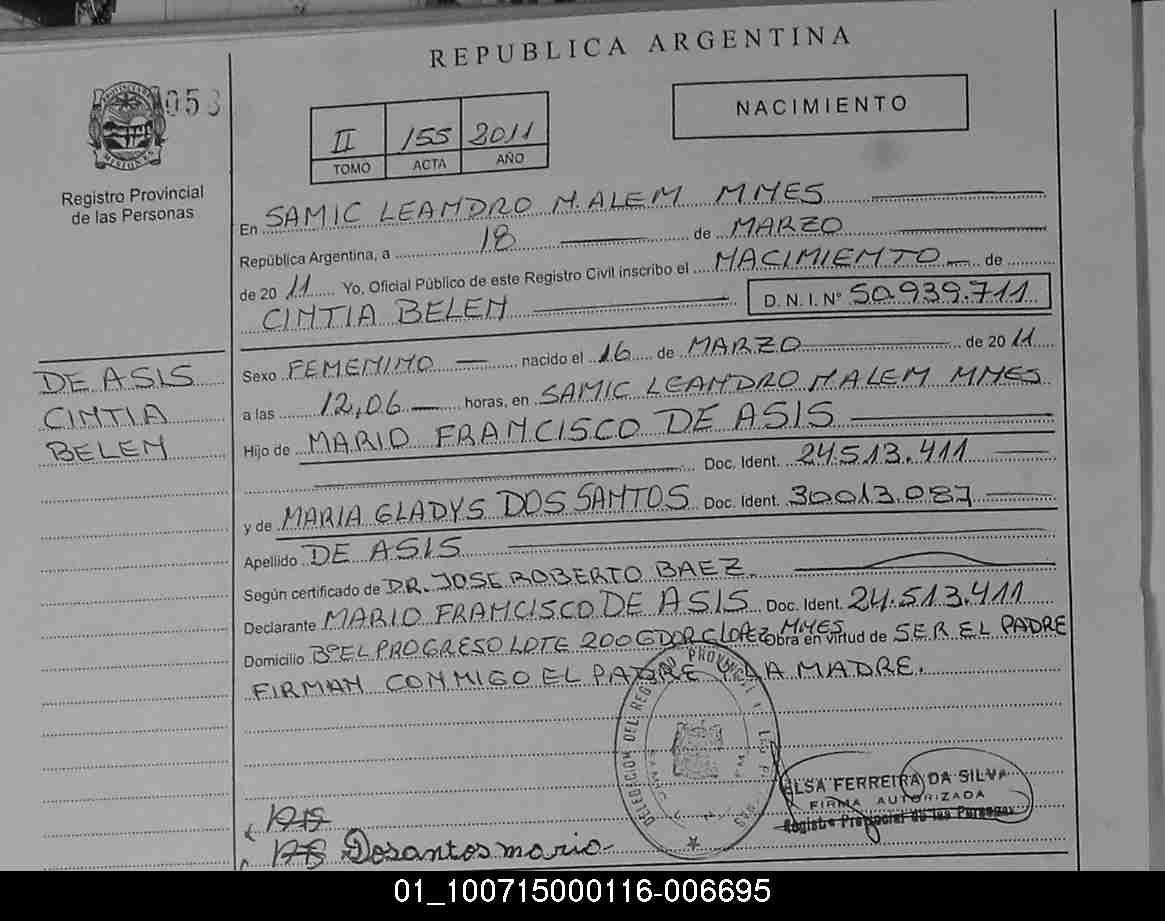 REPUBLICA ARGENTINA
053
NACIMIENTO
II 155 2011
TOMO ACTA AÑO
Registro Provincial
de las Personas
En SAMIC LEANDRO N. ALEM MNES
República Argentina, a 18 de MARZO
de 2011 Yo, Oficial Público de este Registro Civil inscribo el NACIMIENTO de
CINTIA BELEN D. N. I. N° 50.939.711
DE ASIS
CINTIA
BELEN
Sexo FEMENINO nacido el 16 de MARZO de 2011
a las 12,06 horas, en SAMIC LEANDRO N ALEM MNES
Hijo de MARIO FRANCISCO DE ASIS
Doc. Ident. 24.513.411
y de MARIA GLADYS DOS SANTOS Doc. Ident. 30013.087
Apellido DE ASIS
Según certificado de DR. JOSE ROBERTO BAEZ.
Declarante MARIO FRANCISCO DE ASIS Doc. Ident. 24.513.411
Domicilio B° EL PROGRESO LOTE 200 GDOR LOPEZ MNES Obra en virtud de SER EL PADRE
FIRMAN CONMIGO EL PADRE Y LA MADRE.
ELSA FERREIRA DA SILVA
FIRMA AUTORIZADA
Registro Provincial de las Personas
Dosantos maria
01_100715000116-006695